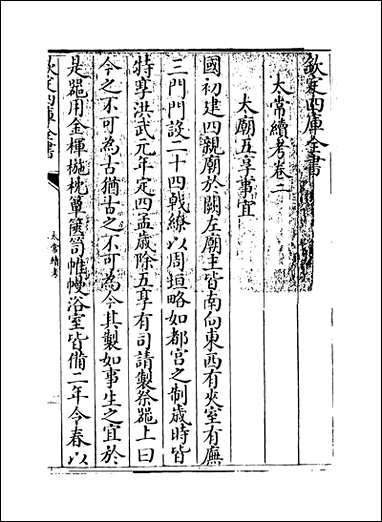 欽定四庫全書
太常續考卷二
太廟五享事宜
國初建四親廟於闕左廟主皆南向東西有夾室有廡
三門門設二十四戟繚以周垣略如都宮之制歲時皆
特享洪武元年定四孟歲除五享有司請製祭器上曰
今之不可為古猶古之不可為今其製如事生之宜於
是器用金楎椸枕簟篋笥帷幔浴室皆備二年今春以
欽定四庫全書
太常續考